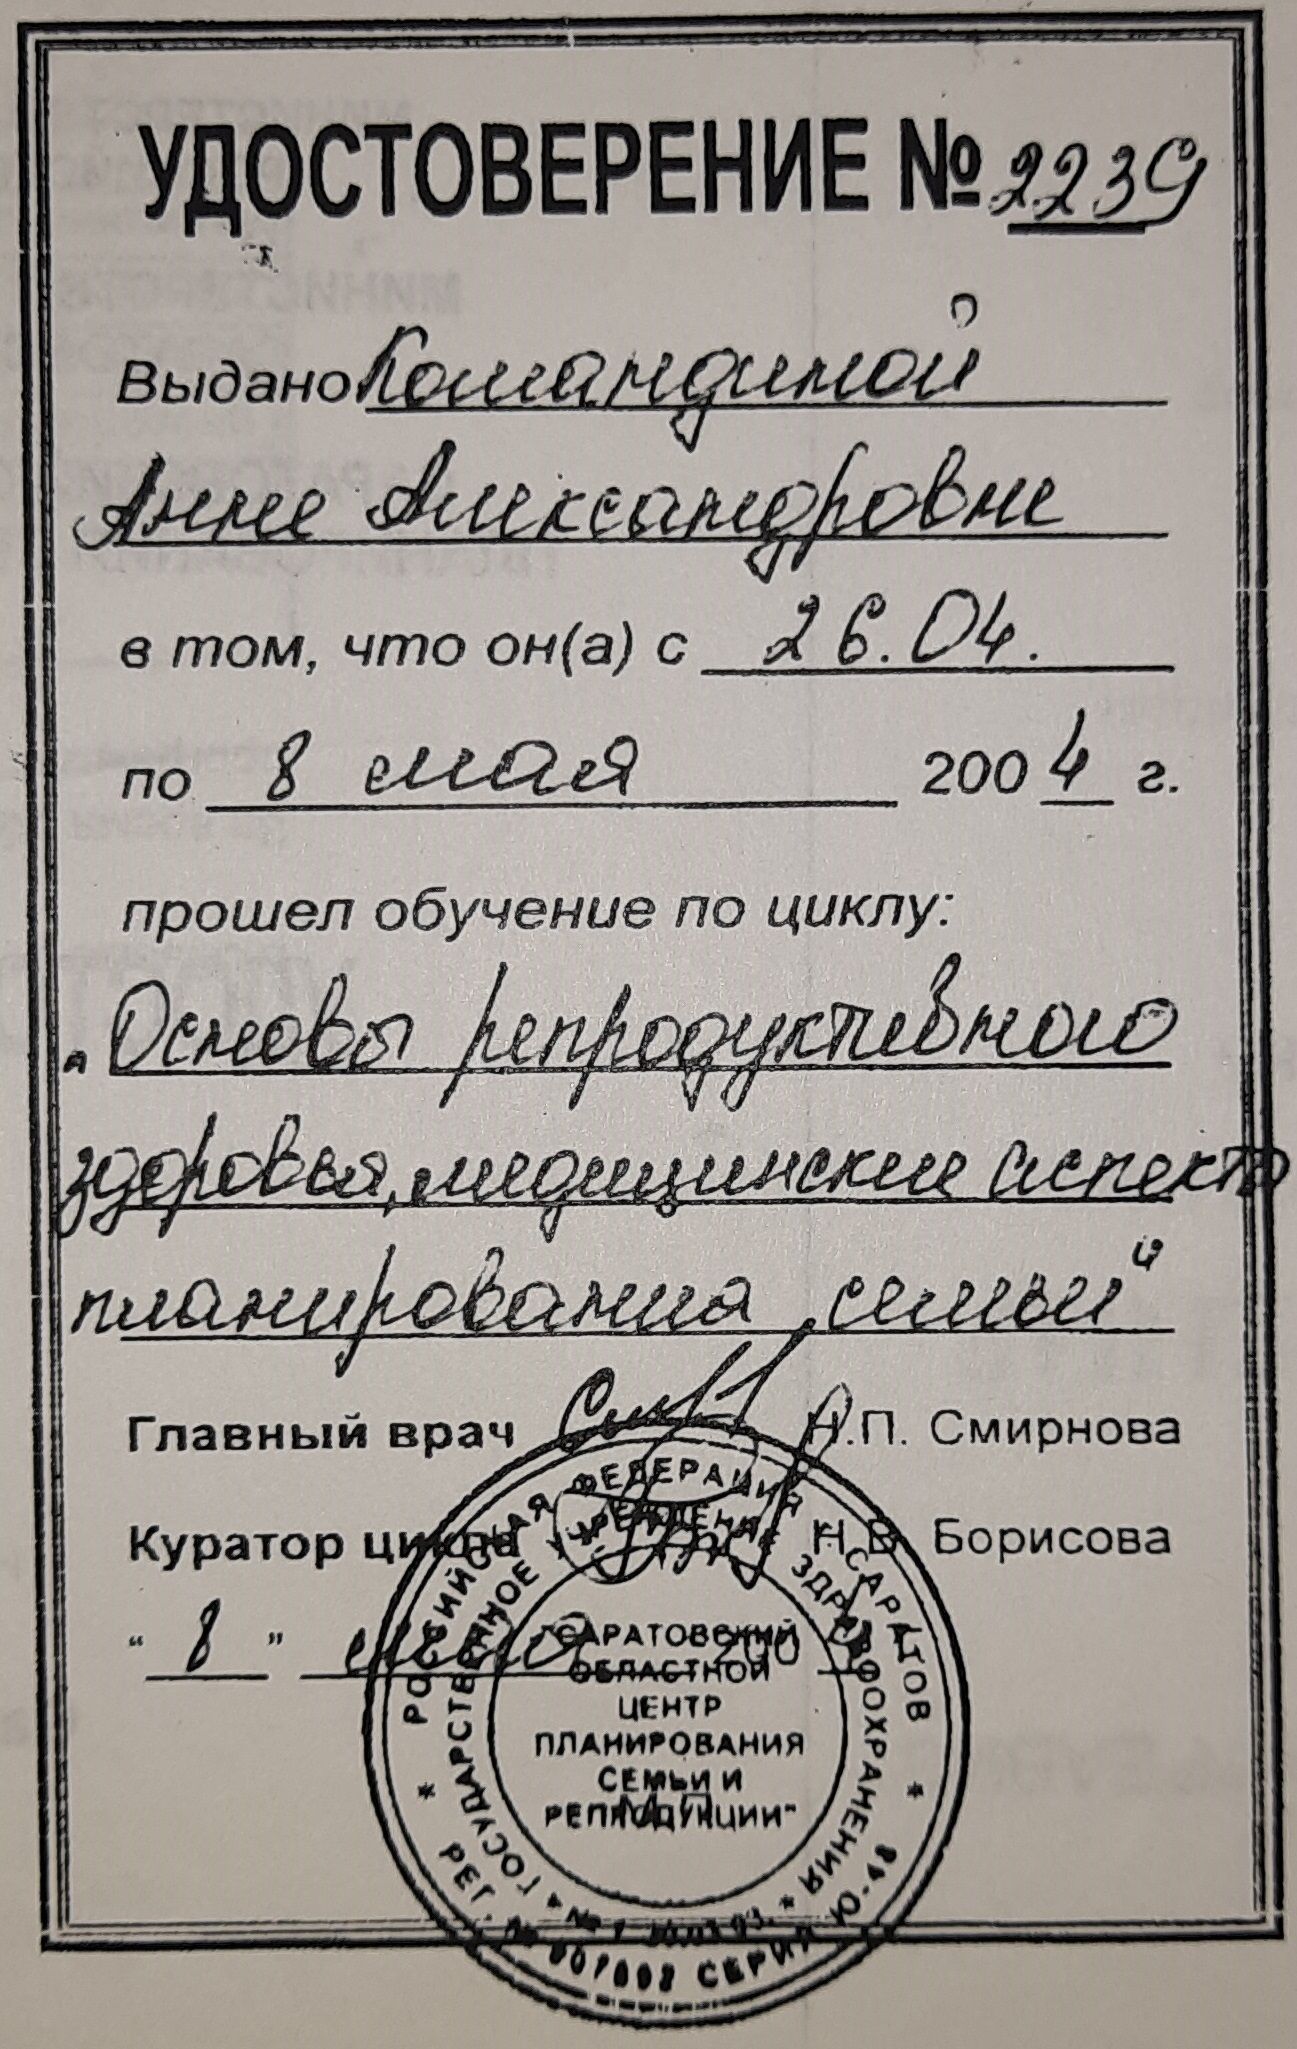 УДОСТОВЕРЕНИЕ № 2239
Выдано Командиной
Анне Александровне
в том, что он(а) с 26.04.
по 8 мая 2004 г.
прошел обучение по циклу:
„Основы репродуктивного
здоровья, медицинские аспекты
планирования семьи"
Главный врач Н.П. Смирнова
Куратор цикла Н.В. Борисова
“ 8 ” мая 2004
М.П.
РОССИЙСКАЯ ФЕДЕРАЦИЯ г. САРАТОВ
ГОСУДАРСТВЕННОЕ УЧРЕЖДЕНИЕ ЗДРАВООХРАНЕНИЯ
"САРАТОВСКИЙ
ОБЛАСТНОЙ
ЦЕНТР
ПЛАНИРОВАНИЯ
СЕМЬИ И
РЕПРОДУКЦИИ"
РЕГ. № СЕРИЯ Ю-48